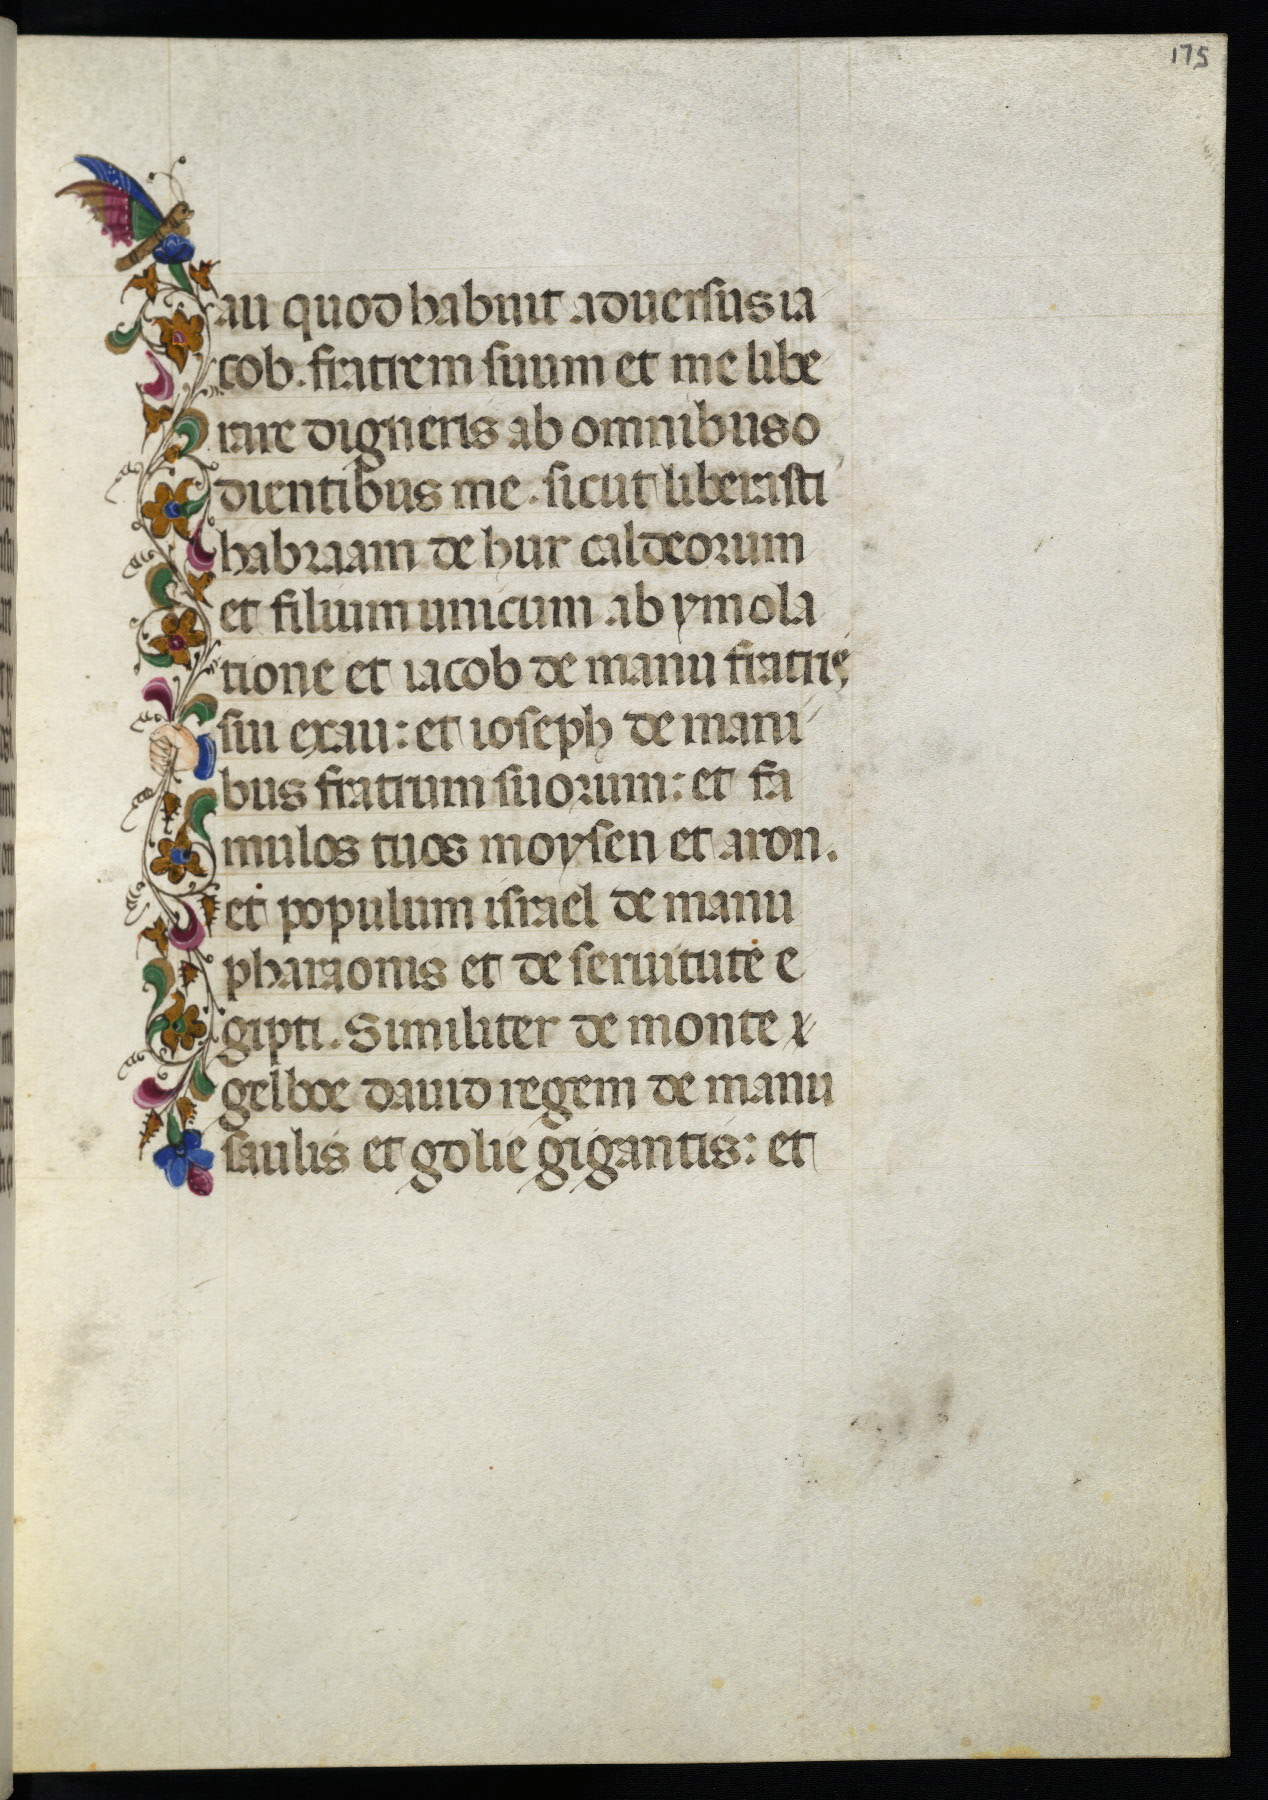 175
au quod habuit adversus ia
cob. fratrem suum et me libe
rare digneris ab omnibus o
dientibus me. sicut liberasti
habraam de hur caldeorum
et filium unicum ab ymola
tione et iacob de manu fratris
sui exau: et ioseph de mani
bus fratrum suorum: et fa
mulos tuos moysen et aron.
et populum israel de manu
pharaonis et de servitute e
gipti. Similiter de monte
gelboe david regem de manu
saulis et golie gigantis: et